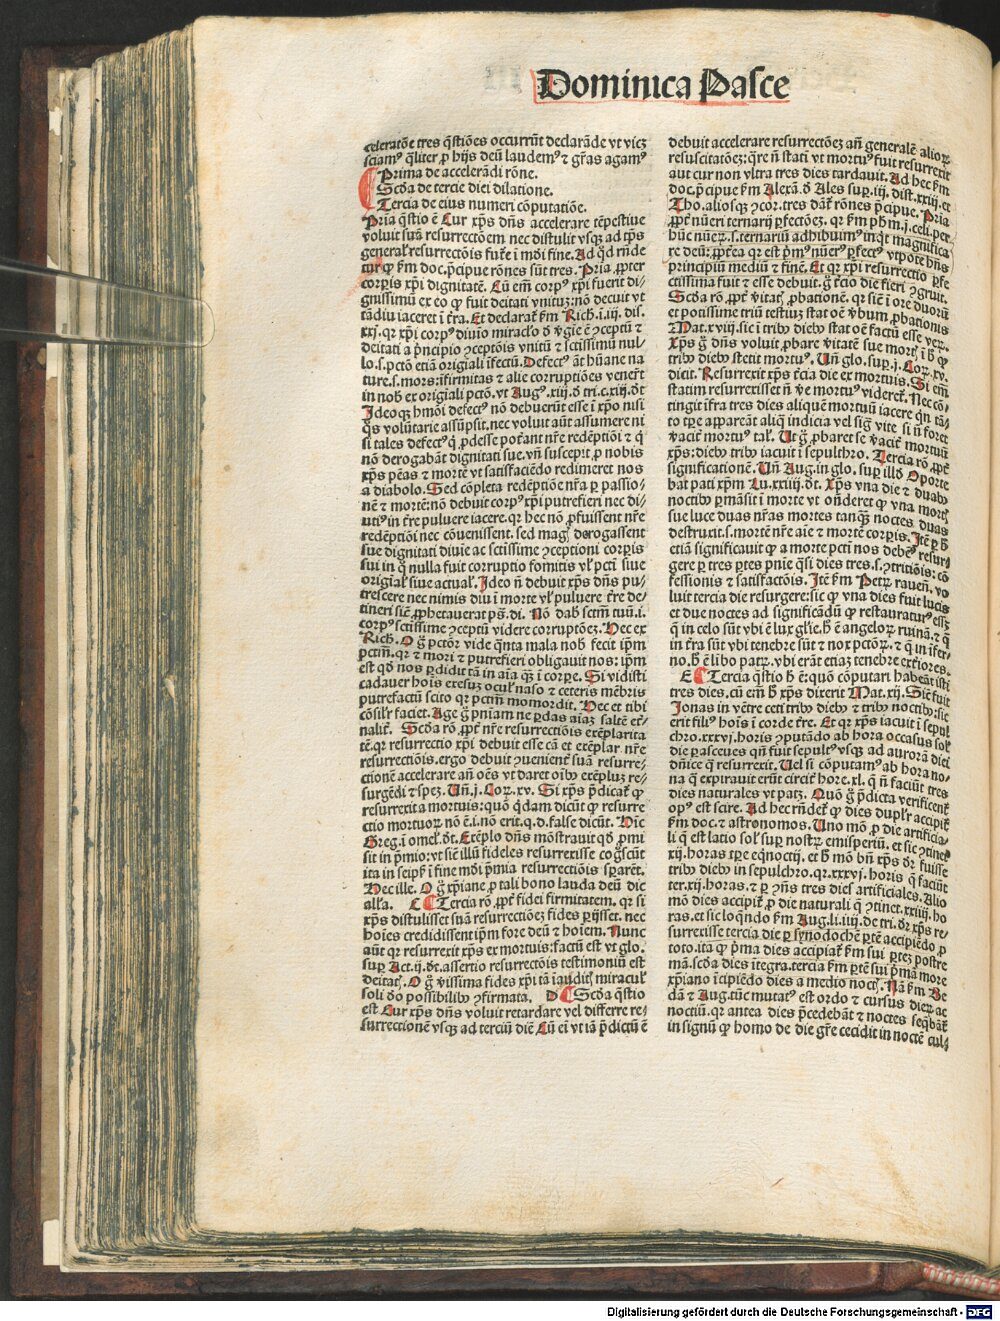 Dominica Pasce
celeratōe tres q̄stiões occurrūt declarāde vt vicꝫ
sciamꝰ q̄liter ꝓ hijs deū laudemꝰ ⁊ gr̄as agamꝰ
Prima de accelerādi rōne.
Scd̄a de tercie diei dilatione.
Tercia de eius numeri cōputatiōe.
Pria q̄stio ē Cur xp̄s dn̄s accelerare tēpestiue
voluit suā resurrectōem nec distulit vsqꝫ ad tp̄s
generaľ resurrectōis futr̄e ī mōi fine. Ad qd̓ rn̄de
tur ꝙ ẜm doc. p̄cipue rōnes sūt tres. Pria ꝓpter
corpīs xp̄i dignitatē. Cū em̄ corpꝰ xp̄i fuerit di-
gnissimū ex eo ꝙ fuit deitati vnitūꝫ: nō decuit vt
tādiu iaceret ī t̄ra. Et declarat̄ ẜm Rich. ī. iij. dis.
xxj. qꝛ xp̄i corpꝰ diuīo miraclo d̓ v̓gīe ē ꝯceptū ⁊
deitati a p̄ncipio ꝯceptōis vnitū ⁊ sctissimū nul-
lo. s. pctō etiā origiali īfectū. Defectꝰ āt hūane na
ture. s. mors: īfirmitas ⁊ alie corruptiões vener̄t
in nob̄ ex origiali pctō. vt Augꝰ. xiij. d̓ tri. c. xiij. d̓t
Ideoqꝫ hmōi defectꝰ nō debuerūt esse ī xp̄o nisi
q̄s volūtarie assūpsit. nec voluit aūt assumere ni
si tales defectꝰ q̄ ꝓdesse poťant nr̄e redēptiōi ⁊ q̄
nō derogabāt dignitati sue. vn̄ suscepit ꝓ nobis
xp̄s pēas ⁊ mortē vt satisfaciēdo redimeret nos
a diabolo. Sed cōpleta redēptiōe nr̄a ꝑ passio-
nē ⁊ mortē: nō debuit corpꝰ xp̄i putrefieri nec di-
utiꝰ in t̄re puluere iacere. qꝛ hec nō ꝓfuissent nr̄e
redēptiōi nec cōuenissent. sed magꝭ derogassent
sue dignitati diuīe ac sctissime ꝯceptioni corpīs
sui in q̄ nulla fuit corruptio fomitis vľ pcti siue
origiaľ siue actuaľ. Ideo n̄ debuit xp̄s dn̄s pu-
trescere nec nimis diu ī morte vľ puluere t̄re de-
tineri sic̄ ꝓphetauerat ps̄. di. Nō dab̄ sctm̄ tuū. ī.
corpꝰ sctissime ꝯceptū videre corruptōeꝫ. Hec ex
Rich. O ḡ pctōr vide q̄nta mala nob̄ fecit ip̄m
pctm̄. qꝛ ⁊ mori ⁊ putrefieri obligauit nos: ip̄m
est qd̓ nos ꝑdidit tā in aīa q̄ꝫ ī corꝑe. Si vidisti
cadauer hoīs exesuꝫ ocul̓ naso ⁊ ceteris mēbris
putrefactū scito qꝛ pctm̄ momordit. Hec et tibi
cōsilr̄ faciet. Age ḡ pn̄iam ne ꝑdas aīaꝫ saltē et̄-
nalit̄. Scd̄a rō ꝓpt̄ nr̄e resurrectiōis exēplarita
tē. qꝛ resurrectio xp̄i debuit esse cā et exēplar nr̄e
resurrectiōis. ergo debuit ꝯuenient̄ suā resurre-
ctionē accelerare añ oēs vt daret oīb ̄ exēpluꝫ re-
surgēdi ⁊ speꝫ. Un̄. j. Coꝝ. xv. Si xp̄s p̄dicat̄ ꝙ
resurrexit a mortuis: quō q̄dam dicūt ꝙ resurre
ctio mortuoꝝ nō ē. ī. nō erit. q. d. false dicūt. Hīc
Greg. ī omel̓. d̓t. Exēplo dn̄s mōstrauit qd̓ ꝓmi
sit in p̄mio: vt sic̄ illū fideles resurrexisse cog̓scūt
ita in seipꝭ ī fine mōi p̄mia resurrectiōis sꝑarēt.
Hec ille. O ḡ xp̄iane ꝓ tali bono lauda deū dic
all̓a. C Tercia rō ꝓpt̄ fidei firmitatem. qꝛ si
xp̄s distulisset suā resurrectiōeꝫ fides ꝑijsset. nec
hoīes credidissent ip̄m fore deū ⁊ hoīem. Nunc
aūt qꝛ resurrexit xp̄s ex mortuis: factū est vt glo.
suꝑ Act. ij. d̓t. assertio resurrectōis testimoniū est
deitatꝭ. O ḡ v̓issima fides xp̄i tā īaudit̓ miracul̓
soli d̓o possibilib ꝯfirmata. D Scd̄a q̄stio
est Cur xp̄s dn̄s voluit retardare vel differre re-
surrectionē vsqꝫ ad terciū diē Cū eī vt iā p̄dictū ē
debuit accelerare resurrectōeꝫ añ generalē alioꝝ
resuscitatōeꝫ: q̄re n̄ stati vt mortuꝰ fuit resurrexit
aut cur non vltra tres dies tardauit. Ad hec ẜm
doc. p̄cipue ẜm Alexā. d̓ Ales suꝑ. iij. dist. xxij. et
Tho. aliosqꝫ ꝯcor. tres dāt̄ rōnes p̄cipue. Pria
ꝓpt̄ nūeri ternarij ꝑfectōeꝫ. qꝛ ẜm ph̄m. j. celi. per
hūc nūeꝝ. s. ternariū adhibuimꝰ inqͥt magnifica
re deū: ꝓpt̄ea qꝛ est p̄mꝰ nūerꝰ ꝑfectꝰ vtpote hn̄s
principiū mediū ⁊ finē. Et qꝛ xp̄i resurrectio ꝑfe
ctissima fuit ⁊ esse debuit. ḡ t̄cio die fieri ꝯgruit.
Scd̄a rō ꝓpt̄ v̓itatꝭ ꝓbationē. qꝛ sic̄ ī ore duorū
et potissime triū testiuꝫ stat oē v̓bum ꝓbationis
⁊ Mat. xviij. sic ī trib dieb stat oē factū esse veꝝ.
Xp̄s ḡ dn̄s voluit ꝓbare v̓itatē sue mortꝭ ī h̄ ꝙ
trib dieb stetit mortuꝰ. Un̄ glo. suꝑ. j. Coꝝ. xv.
dicit. Resurrexit xp̄s t̄cia die ex mortuis. Si em̄
statim resurrexisset n̄ ve mortuꝰ videret̄. Nec cō-
tingit īfra tres dies aliquē mortuū iacere q̄n tā-
to tꝑe appareāt aliq̄ indicia vel sig̓ vite si n̄ foret
vacit̓ mortuꝰ tal̓. Ut ḡ ꝓbaret se v̓acit̓ mortuū
xp̄s: dieb trib iacuit ī sepulchro. Tercia rō ꝓpt̄
significationē. Un̄ Aug. in glo. suꝑ illd̓ Oporte
bat pati xp̄m Lu. xxiiij. d̓t. Xp̄s vna die ⁊ duab
noctib ꝑmāsit ī morte vt on̄deret ꝙ vna mortꝭ
sue luce duas nr̄as mortes tanqꝫ noctes duas
destruxit. s. mortē nr̄e aīe ⁊ mortē corpīs. Itē ꝑ h̄
etiā significauit ꝙ a morte pcti nos debeꝰ resur-
gere ꝑ tres ꝑtes pn̄ie q̄si dies tres. s. ꝯtritiōis: cō
fessionis ⁊ satisfactōis. Itē ẜm Petꝝ rauen̄. vo
luit tercia die resurgere: sic ꝙ vna dies fuit lucis
et due noctes ad significādū ꝙ restauraturꝰ essꝫ
q̄ in celo sūt vbi ē lux gl̓ie. h̄ ē angeloꝝ ruinā. ⁊ q̄
in t̄ra sūt vbi tenebre sūt ⁊ nox pctōꝝ. ⁊ q̄ in īfer-
no. h̄ ē līb̄o patꝝ. vbi erāt etiaꝫ tenebre exteriores.
E Tercia q̄stio h̄ ē: quō cōputari habeāt isti
tres dies. cū em̄ h̄ xp̄s dixerit Mat. xij. Sic̄ fuit
Jonas in vētre ceti trib dieb ⁊ trib noctib: sic
erit filiꝰ hoīs ī corde t̄re. Et qꝛ xp̄s iacuit ī sepul
chro. xxxvj. horis ꝯputādo ab hora occasus sol̓
die ꝑasceues qn̄ fuit sepultꝰ vsqꝫ ad aurorā diei
dn̄ice q̄ resurrexit. Uel si cōputamꝰ ab hora no-
na q̄ expirauit erūt circit̓ hore. xl. q̄ n̄ faciūt tres
dies naturales vt patꝫ. Quō ḡ p̄dicta verificent̄
opꝰ est scire. Ad hec rn̄det̄ ꝙ dies dupl̓r accipit̄
ẜm doc. ⁊ astronomos. Uno mō ꝓ die artificia-
li q̄ est latio sol̓ suꝑ nostꝝ emisperiū. et sic ꝯtinet
xij. horas tꝑe eq̄noctij. et h̄ mō bn̄ xp̄s d̓r fuisse
trib dieb in sepulchro. qꝛ. xxxvj. horis q̄ faciūt
ter. xij. horas. ⁊ ꝑ ꝯn̄s tres dies artificiales. Alio
mō dies accipit̄ ꝓ die naturali q̄ ꝯtinet. xxiiij. ho
ras. et sic loq̄ndo ẜm Aug. li. iiij. de tri. d̓r xp̄s re-
surrexisse tercia die ꝑ synodochē ꝑtē accipiēdo ꝓ
toto. ita ꝙ p̄ma dies accipiat̄ ẜm sui ꝑteꝫ postre
mā. scd̄a dies ītegra. tercia ẜm ꝑtē sui p̄mā more
xp̄iano īcipiēdo dies a medio noctꝭ. Nā ẜm Be
dā ⁊ Aug. tūc mutatꝰ est ordo ⁊ cursus dieꝝ ac
noctiū. qꝛ antea dies p̄cedebāt ⁊ noctes seq̄bāt̄
in signū ꝙ homo de die gr̄e cecidit in noctē cul-
Digitalisierung gefördert durch die Deutsche Forschungsgemeinschaft - DFG